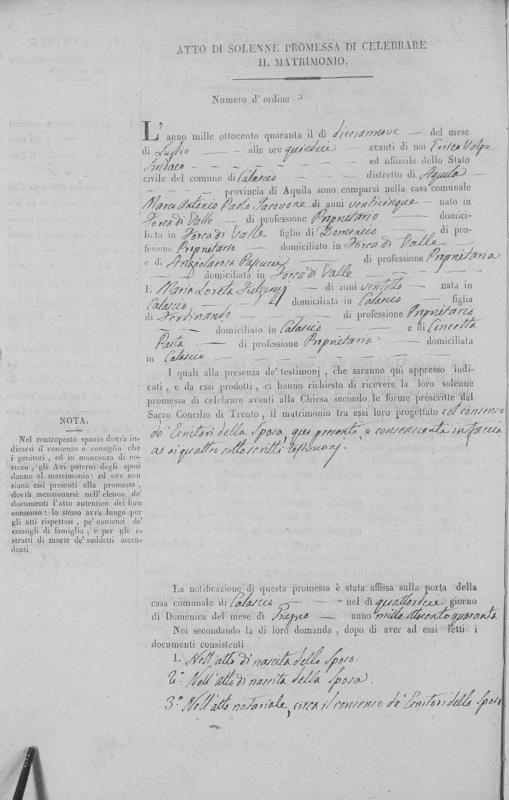 ATTO DI SOLENNE PROMESSA DI CELEBRARE
IL MATRIMONIO.
Numero d' ordine 2
L' anno mille ottocento quaranta il dì diecinnove — del mese
di Luglio — — alle ore quindeci — avanti di noi Errico Volpe
Sindaco — — — — ed uffiziale dello Stato
civile del comune di Calascio — — distretto di Aquila —
— — — provincia di Aquila sono comparsi nella casa comunale
Marco Antonio Paolo Iacovone di anni venticinque — nato in
Forca di Valle — di professione Proprietario — domici-
liato in Forca di Valle figlio di Domenico — di pro-
fessione Proprietario — domiciliato in Forca di Valle —
e di — di professione Proprietaria
— — domiciliata in Forca di Valle — —
E Maria Loreta Fulgenzj — di anni ventotto — nata in
Calascio — domiciliata in Calascio — figlia
di Ferdinando — — di professione Proprietario
— — domiciliato in Calascio — e di Concetta
Pasta — di professione Proprietaria — domiciliata
in Calascio — — — —
I quali alla presenza de' testimonj, che saranno quì appresso indi-
cati, e da essi prodotti, ci hanno richiesto di ricevere la loro solenne
promessa di celebrare avanti alla Chiesa secondo le forme prescritte dal
Sacro Concilio di Trento, il matrimonio tra essi loro progettato col consenso
de' Genitori della Sposa, qui presenti, e consenzienti in faccia
ai quattro sottoscritti testimonj.
NOTA.
Nel controposto spazio dovrà in-
dicarsi il consenso o consiglio che
i genitori, ed in mancanza di co-
storo, gli Avi paterni degli sposi
danno al matrimonio: ed ove non
siano essi presenti alla promessa,
dovrà menzionarsi nell'elenco de'
documenti l'atto autentico del loro
consenso: lo stesso avrà luogo per
gli atti rispettosi, pe' consensi de'
consigli di famiglia, e per gli e-
stratti di morte de' suddetti ascen-
denti
La notificazione di questa promessa è stata affissa sulla porta della
casa comunale di Calascio — — nel dì quattordici giorno
di Domenica del mese di Giugno — anno mille ottocento quaranta
Noi secondando la di loro domanda, dopo di aver ad essi letti i
documenti consistenti
1. Nell'atto di nascita dello Sposo.
2.° Nell'atto di nascita della Sposa.
3.° Nell'atto notariale, circa il consenso de' Genitori dello Sposo